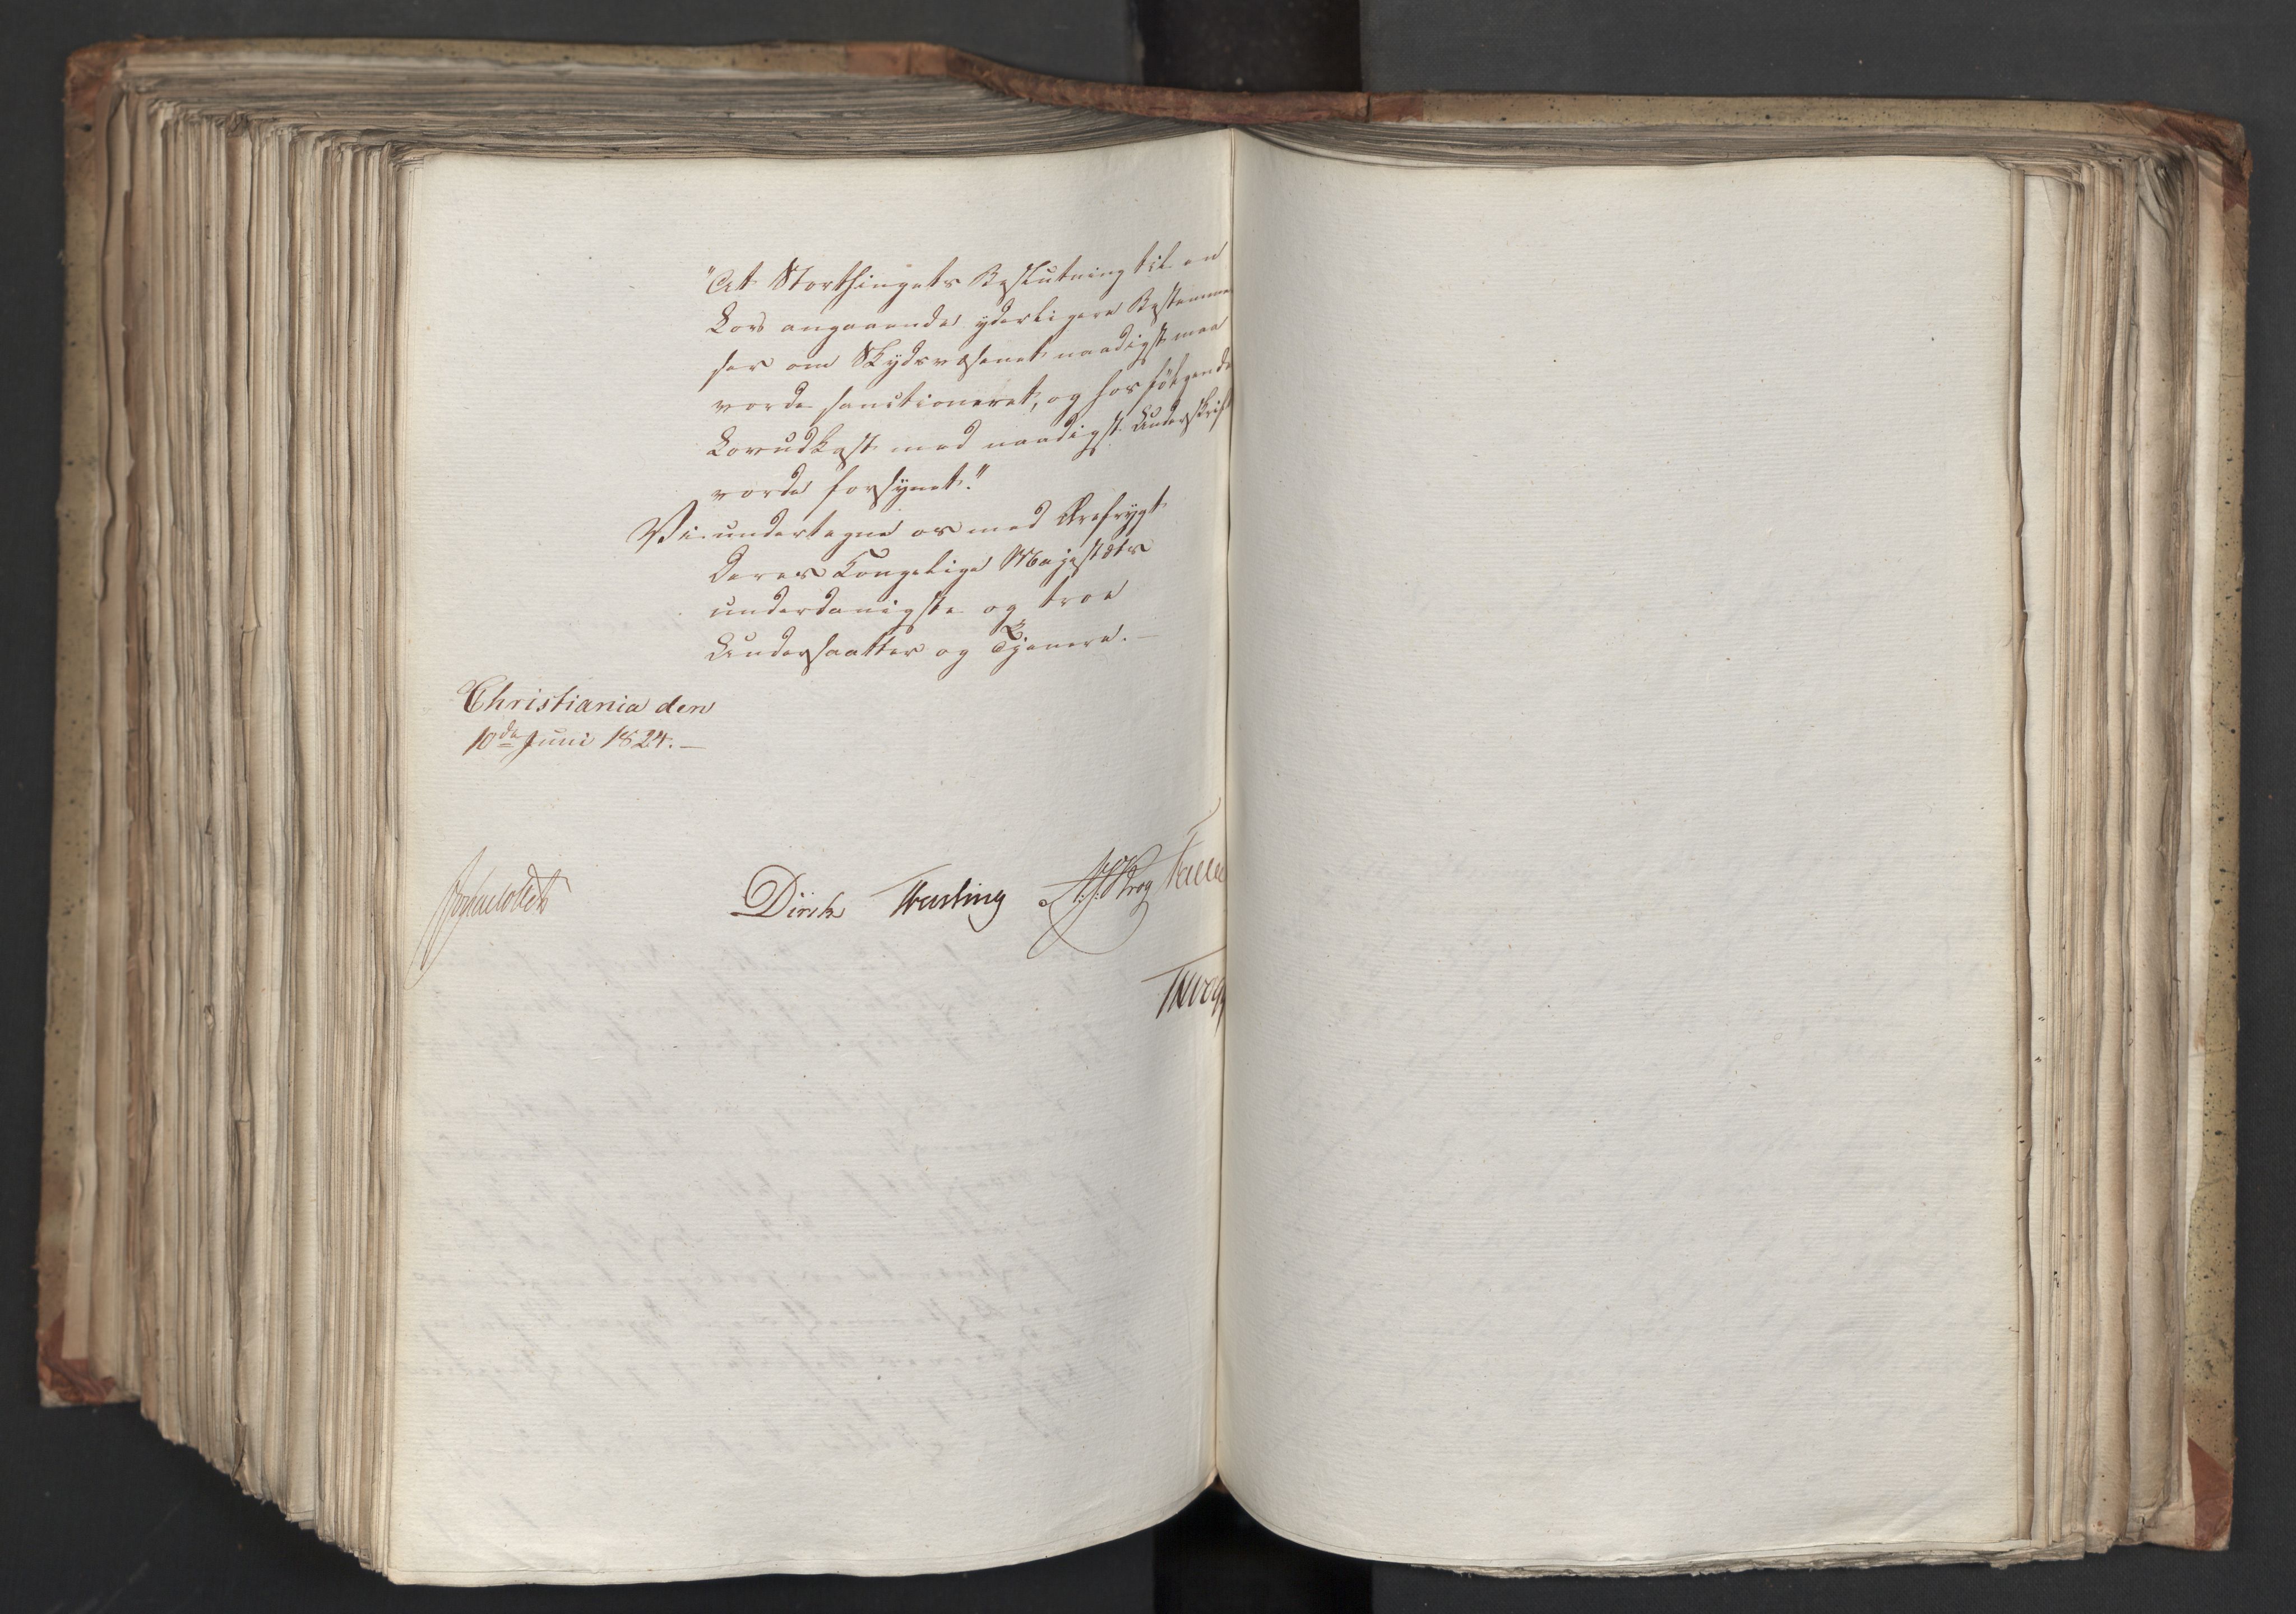 "At Storthingets Beslutning til en
Lov angaaende yderligere Bestemmel
ser om Skydsvæsenet naadigst maa
vorde sanctioneret, og hosfölgende
Lovudkast med naadigst Underskrift
vorde forsynet."
Vi undertegne os med Ærefrygt
Deres Kongelige Majestæts
underdanigste og troe
Undersaatter og Tjenere. —
Christiania den
10de Juni 1824. —
Dirik